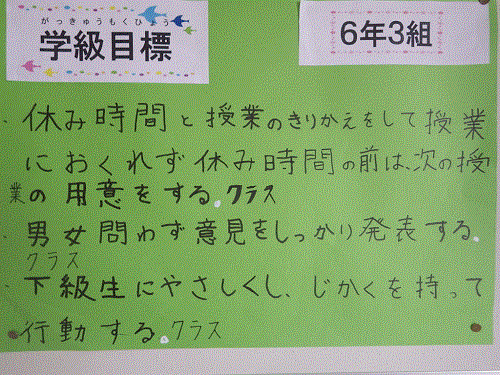 がっきゅうもくひょう
学級目標
6年3組
・休み時間と授業のきりかえをして授業
におくれず休み時間の前は、次の授
業の用意をする。クラス
・男女問わず意見をしっかり発表する。
クラス
・下級生にやさしくし、じかくを持って
行動する。クラス